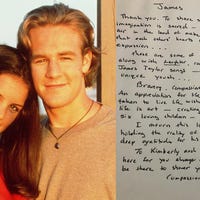 James
Thank you. To share
imagination is sacred
air in the land of make
that each other's hearts
expression....
these are some of
along with laughter,
James Taylor songs
unique youth....
Bravery. Compassion
An appreciation for
taken to live life
life is art – creating
six loving children –
I mourn this
holding the reality of
deep gratitude for his
To Kimberly and
here for you always
be there to shower you
Compassion